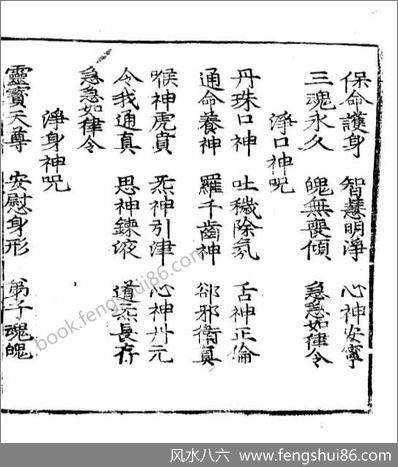 保命護身 智慧明淨 心神安寧
三魂永久 魄無喪傾 急急如律令
淨口神呪
丹珠口神 吐穢除氛 舌神正倫
通命養神 羅千齒神 卻邪衛真
喉神虎賁 炁神引津 心神丹元
令我通真 思神鍊液 道炁長存
急急如律令
淨身神呪
靈寶天尊 安慰身形 弟子魂魄
book.fengshui86.com
风水八六 www.fengshui86.com